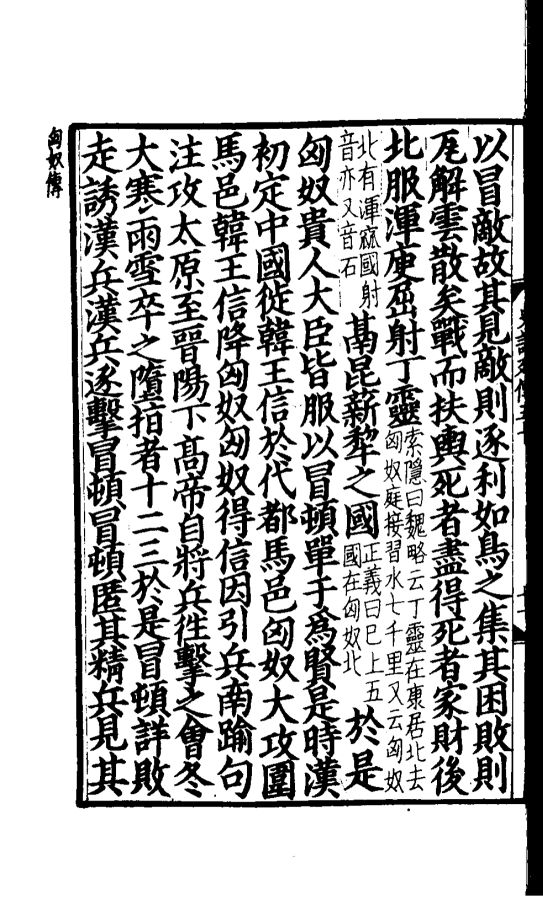 以冒敵故其見敵則逐利如鳥之集其困敗則
瓦解雲散矣戰而扶輿死者盡得死者家財後
北服渾庾屈射丁靈索隱曰魏略云丁靈在康居北去匈奴庭接習水七千里又云匈奴
北有渾窳國射音亦又音石鬲昆薪犁之國正義曰已上五國在匈奴北於是
匈奴貴人大臣皆服以冒頓單于爲賢是時漢
初定中國徙韓王信於代都馬邑匈奴大攻圍
馬邑韓王信降匈奴匈奴得信因引兵南踰句
注攻太原至晉陽下髙帝自將兵徃擊之會冬
大寒雨雪卒之墮指者十二三於是冒頓詳敗
走誘漢兵漢兵逐擊冒頓冒頓匿其精兵見其
匈奴傳